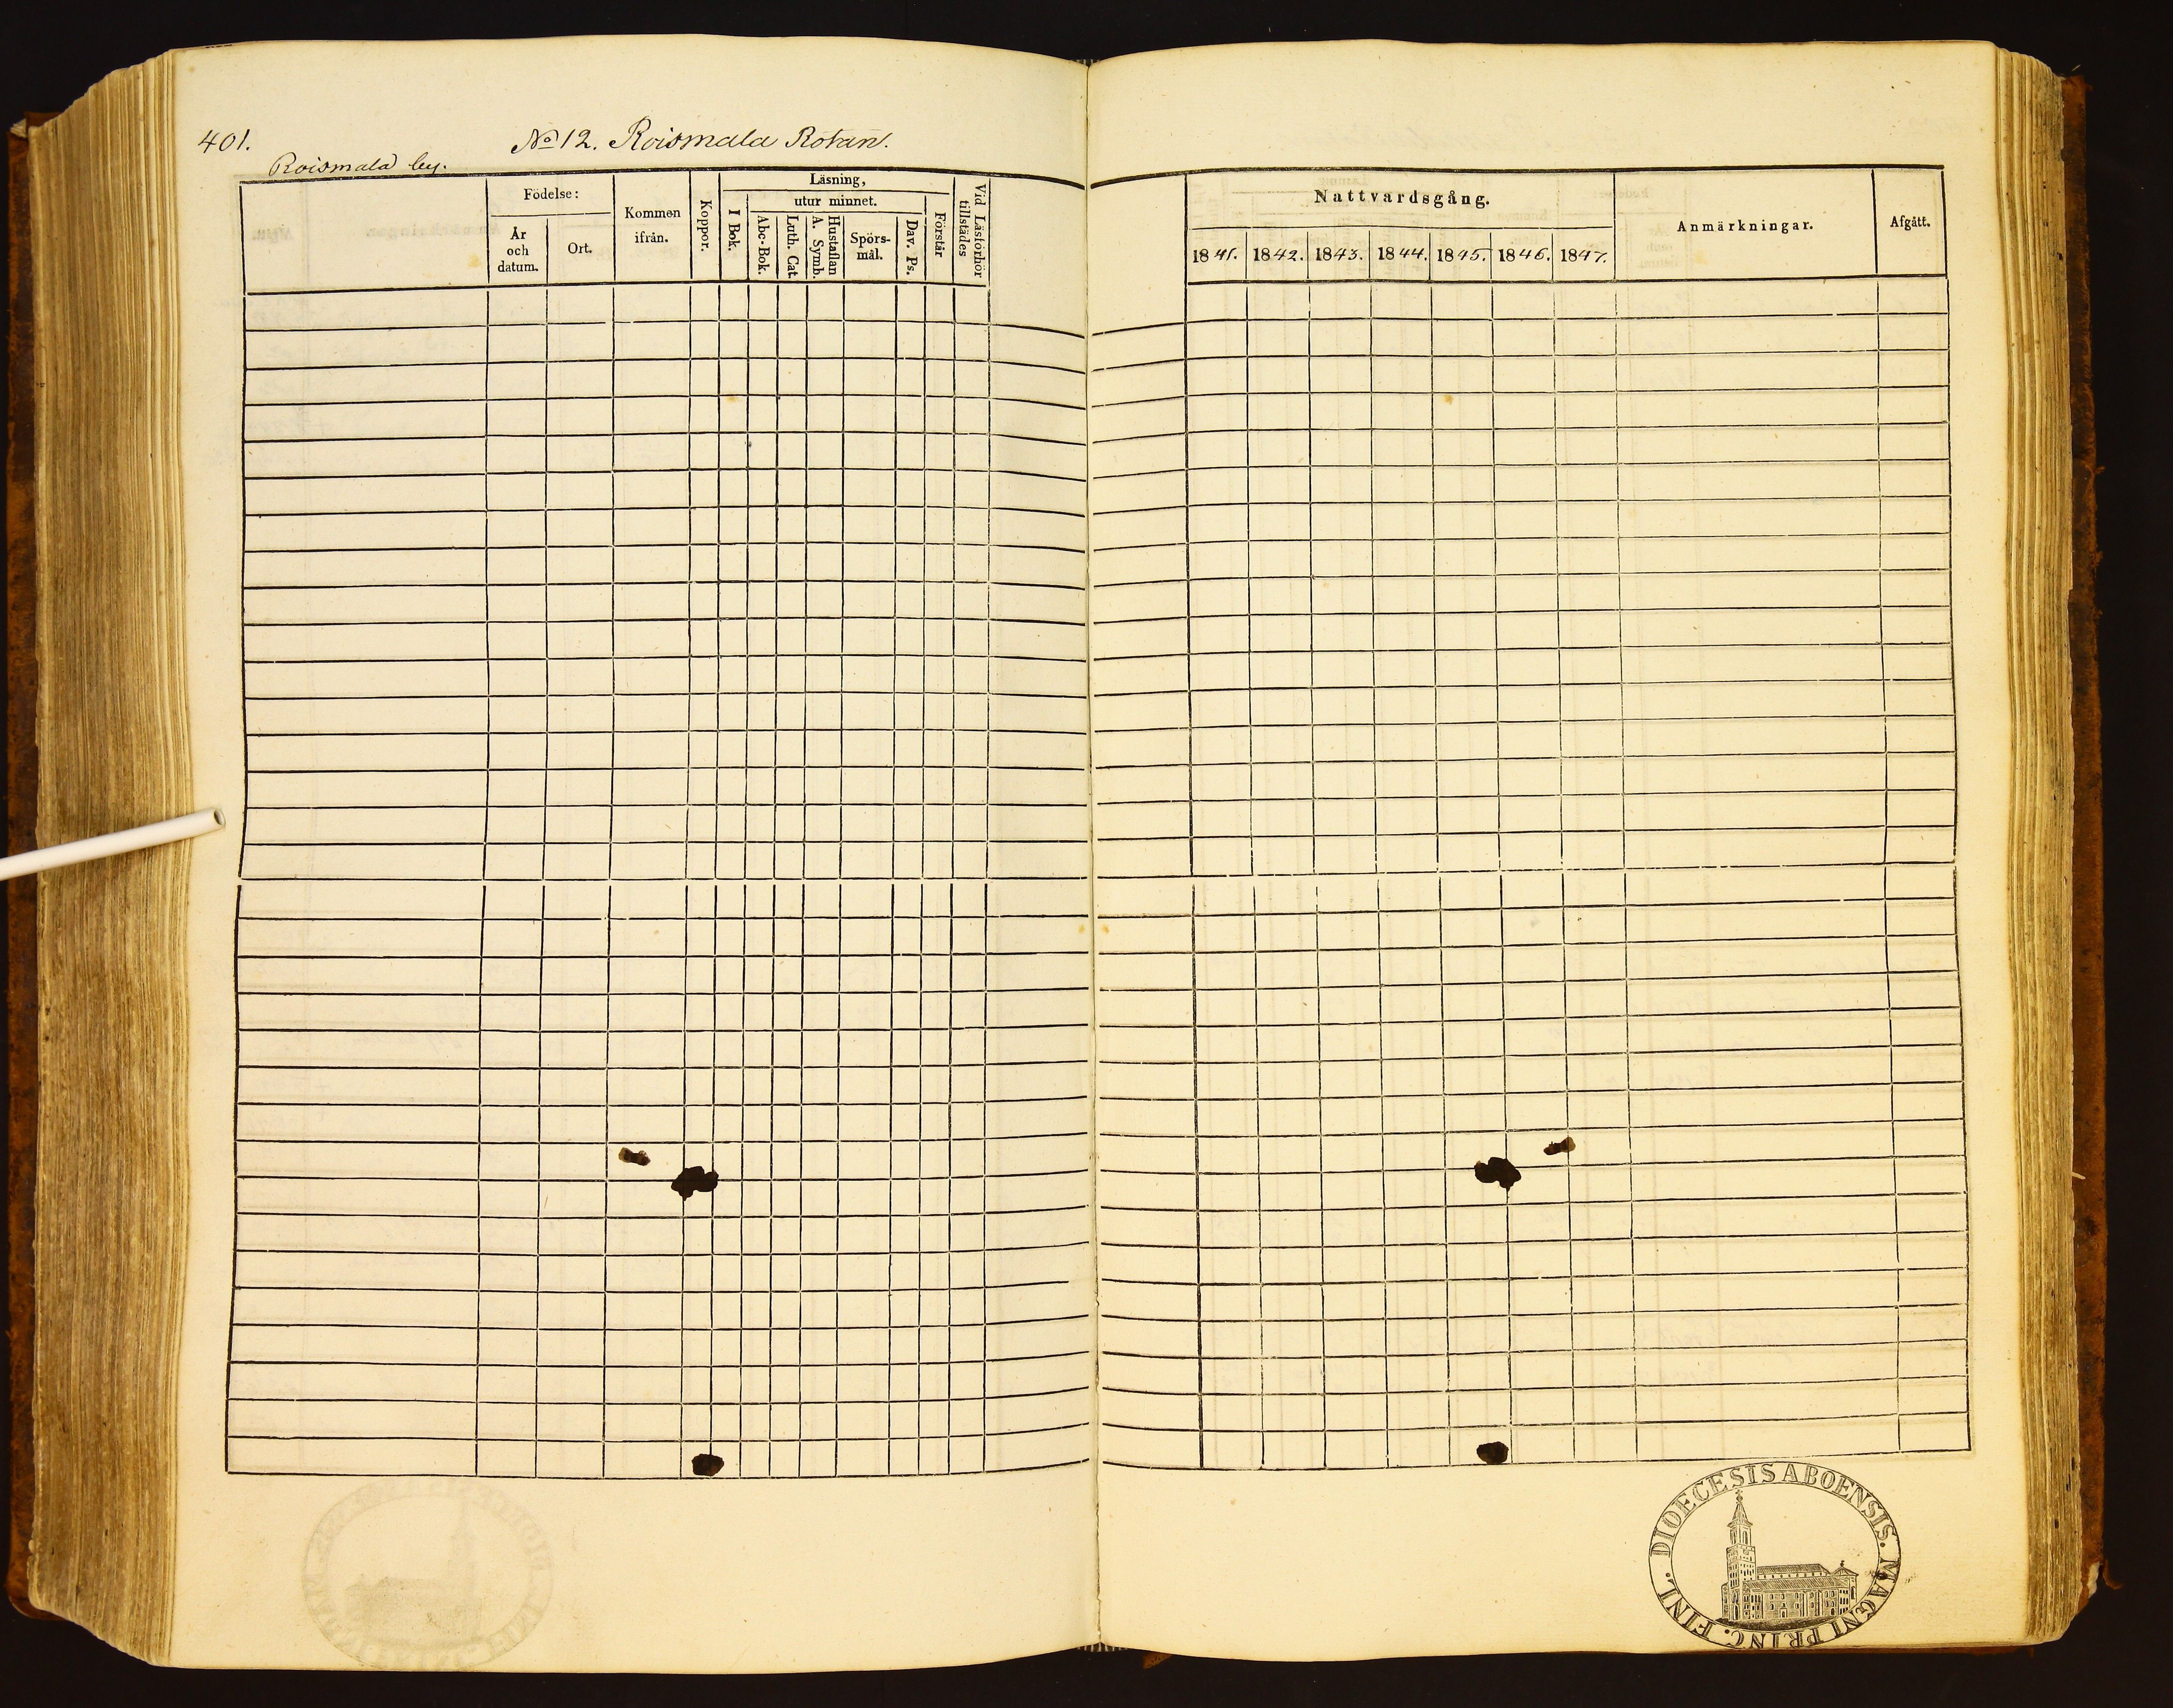 401.
No 12. Roismala Rotan.
Roismala by.
Födelse:
År och datum.
Ort.
Kommen ifrån.
Koppor.
Läsning,
I Bok.
utur minnet.
Abc-Bok.
Luth. Cat.
Hustaflan
A. Symb.
Spörs-
mål.
Dav. Ps.
Förstår
Vid Läsförhör
tillstädes
Nattvardsgång.
1841. 1842. 1843. 1844. 1845. 1846. 1847.
Anmärkningar.
Afgått.
DIOECESIS ABOENSIS. MAGNI PRINC. FINL.